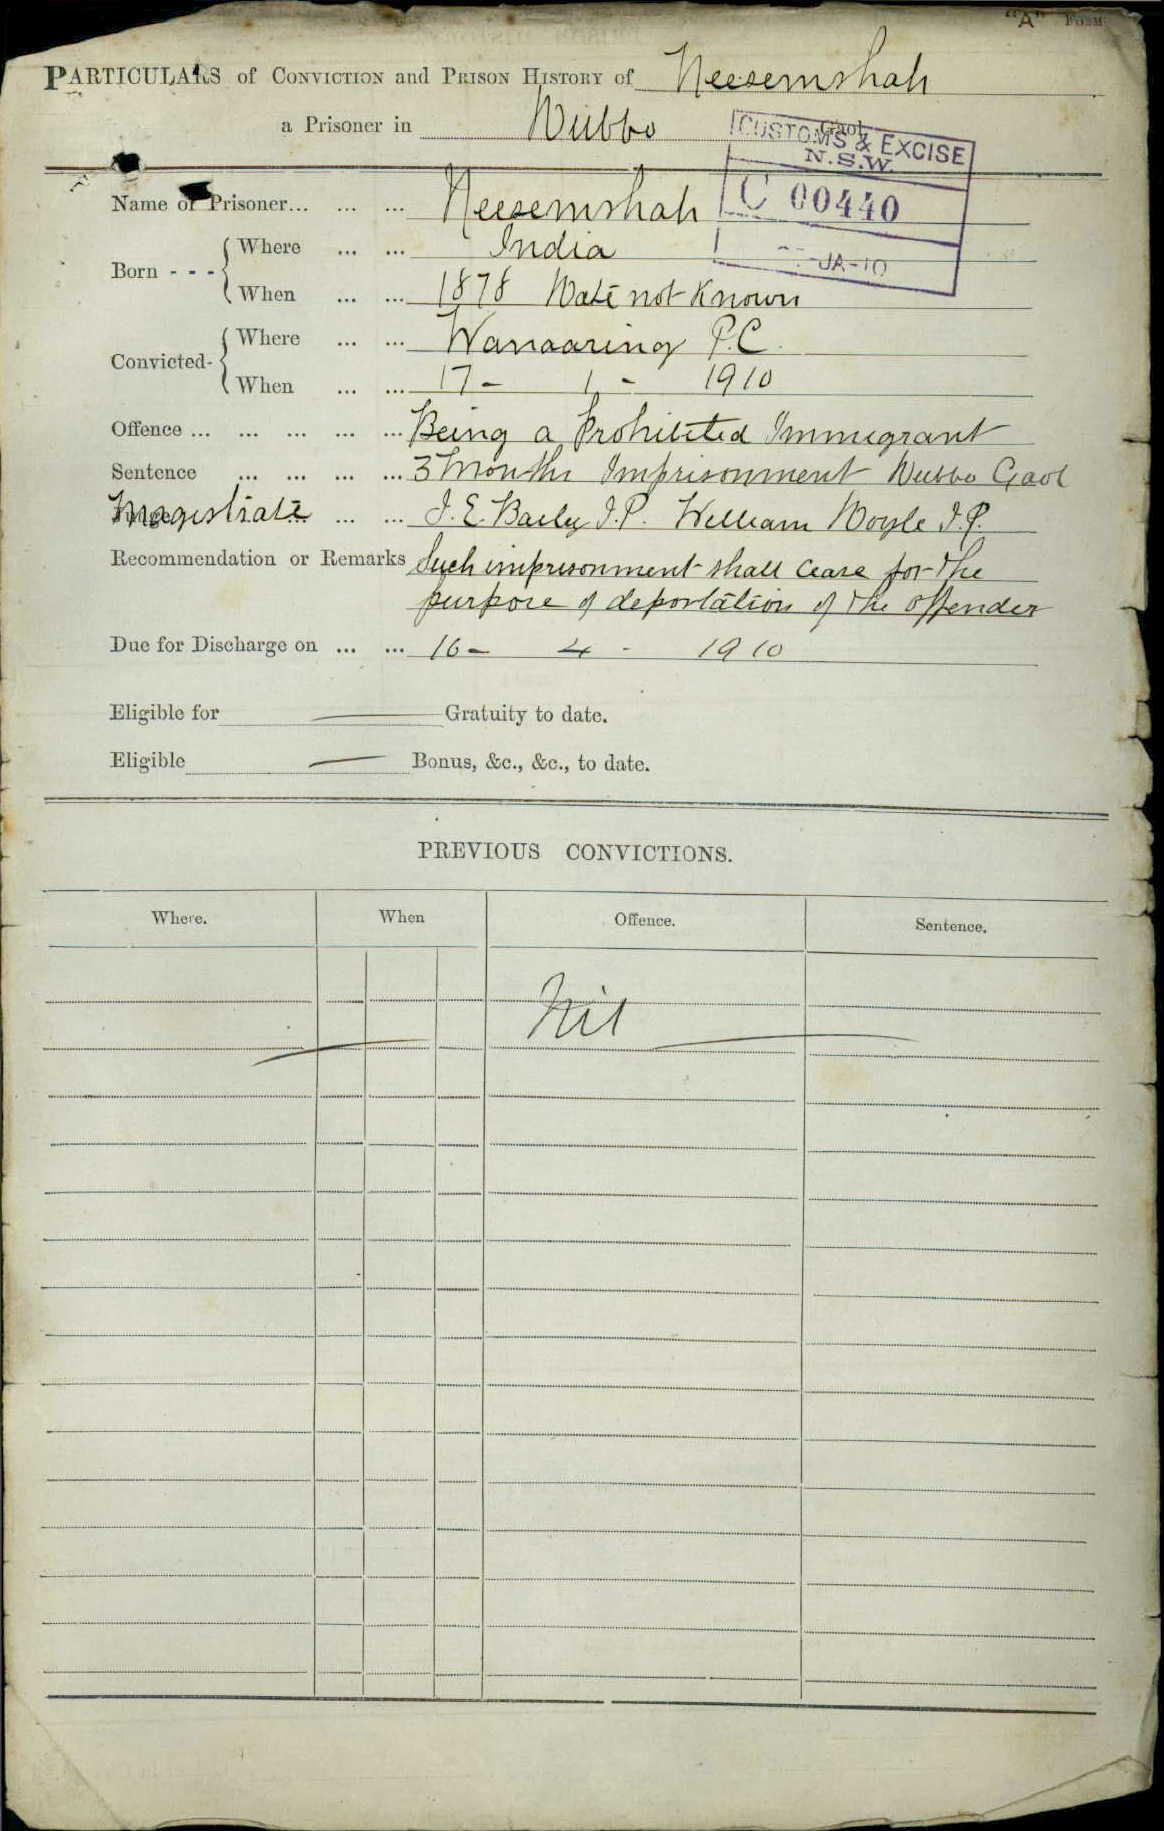 "A" FORM
PARTICULARS of CONVICTION and PRISON HISTORY of Neesemshah
a Prisoner in Dubbo Gaol
CUSTOMS & EXCISE
N.S.W.
C 00440
JA-10
Name of Prisoner... ... ... Neesemshah
Born - - - Where ... ... India
When ... ... 1878 Date not Known
Convicted- Where ... ... Wanaaring P.C.
When ... ... 17 - 1 - 1910
Offence ... ... ... ... ... Being a Prohibited Immigrant
Sentence ... ... ... ... 3 Months Imprisonment Dubbo Gaol
Magistrate ... ... J. E. Baily J.P. William Doyle J.P.
Recommendation or Remarks Such imprisonment shall cease for the
purpose of deportation of the offender
Due for Discharge on ... ... 16 - 4 - 1910
Eligible for — Gratuity to date.
Eligible — Bonus, &c., &c., to date.
PREVIOUS CONVICTIONS.
Where. When Offence. Sentence.
Nil